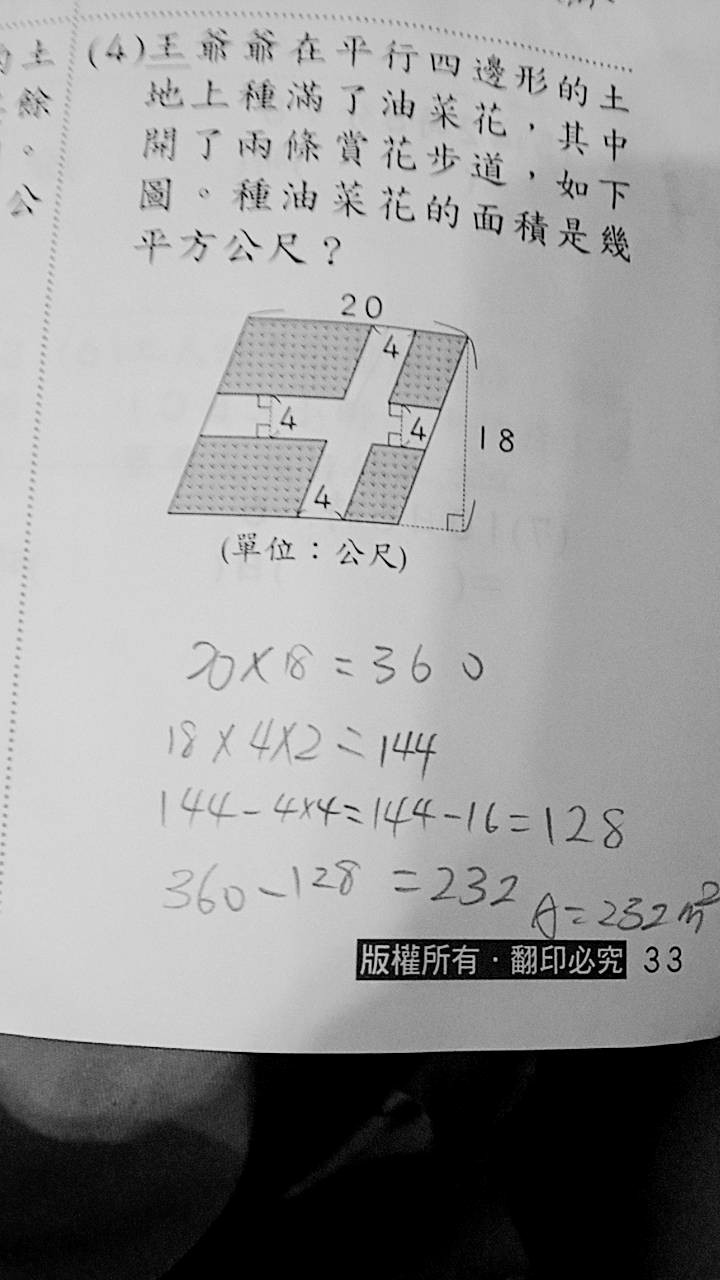 土
餘
。
公
(4)王爺爺在平行四邊形的土
地上種滿了油菜花，其中
開了兩條賞花步道，如下
圖。種油菜花的面積是幾
平方公尺？
20
4
4
4
18
4
(單位：公尺)
20×18=360
18×4×2=144
144-4×4=144-16=128
360-128=232
A=232m²
版權所有·翻印必究 33